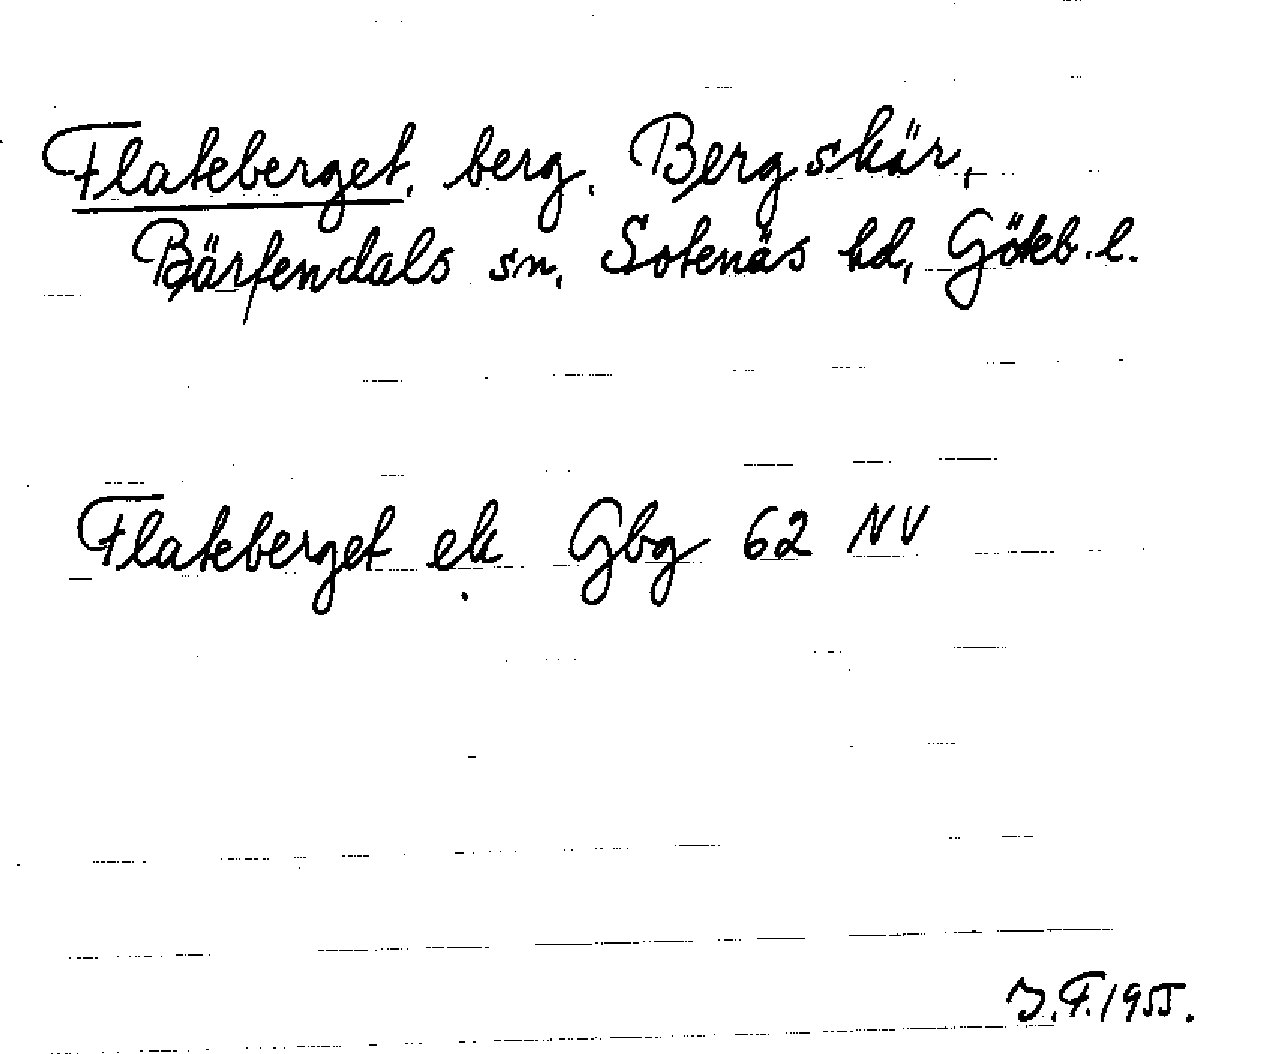 Flateberget, berg. Bergskär,
Bärfendals sn, Sotenäs hd, Göteb. l.
Flateberget ek Gbg 62 NV
J.F. 1955.